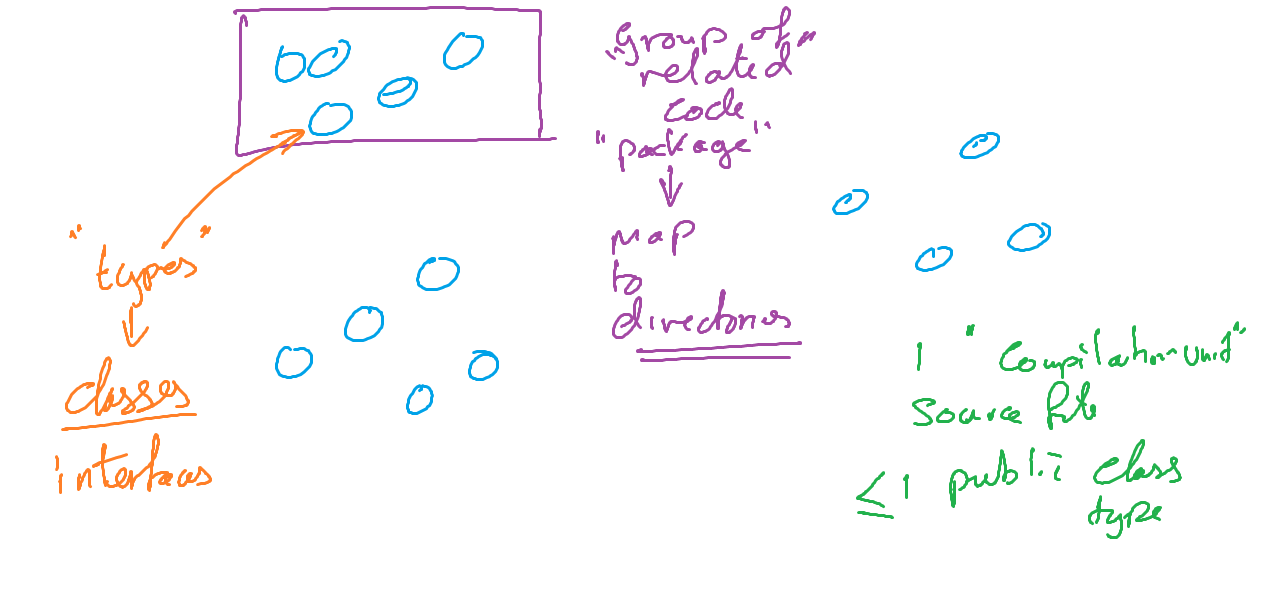 "group of"
related
code
"package"
map
to
directories
"types"
classes
interfaces
1 "Compilation-unit"
Source file
≤ 1 public class
type